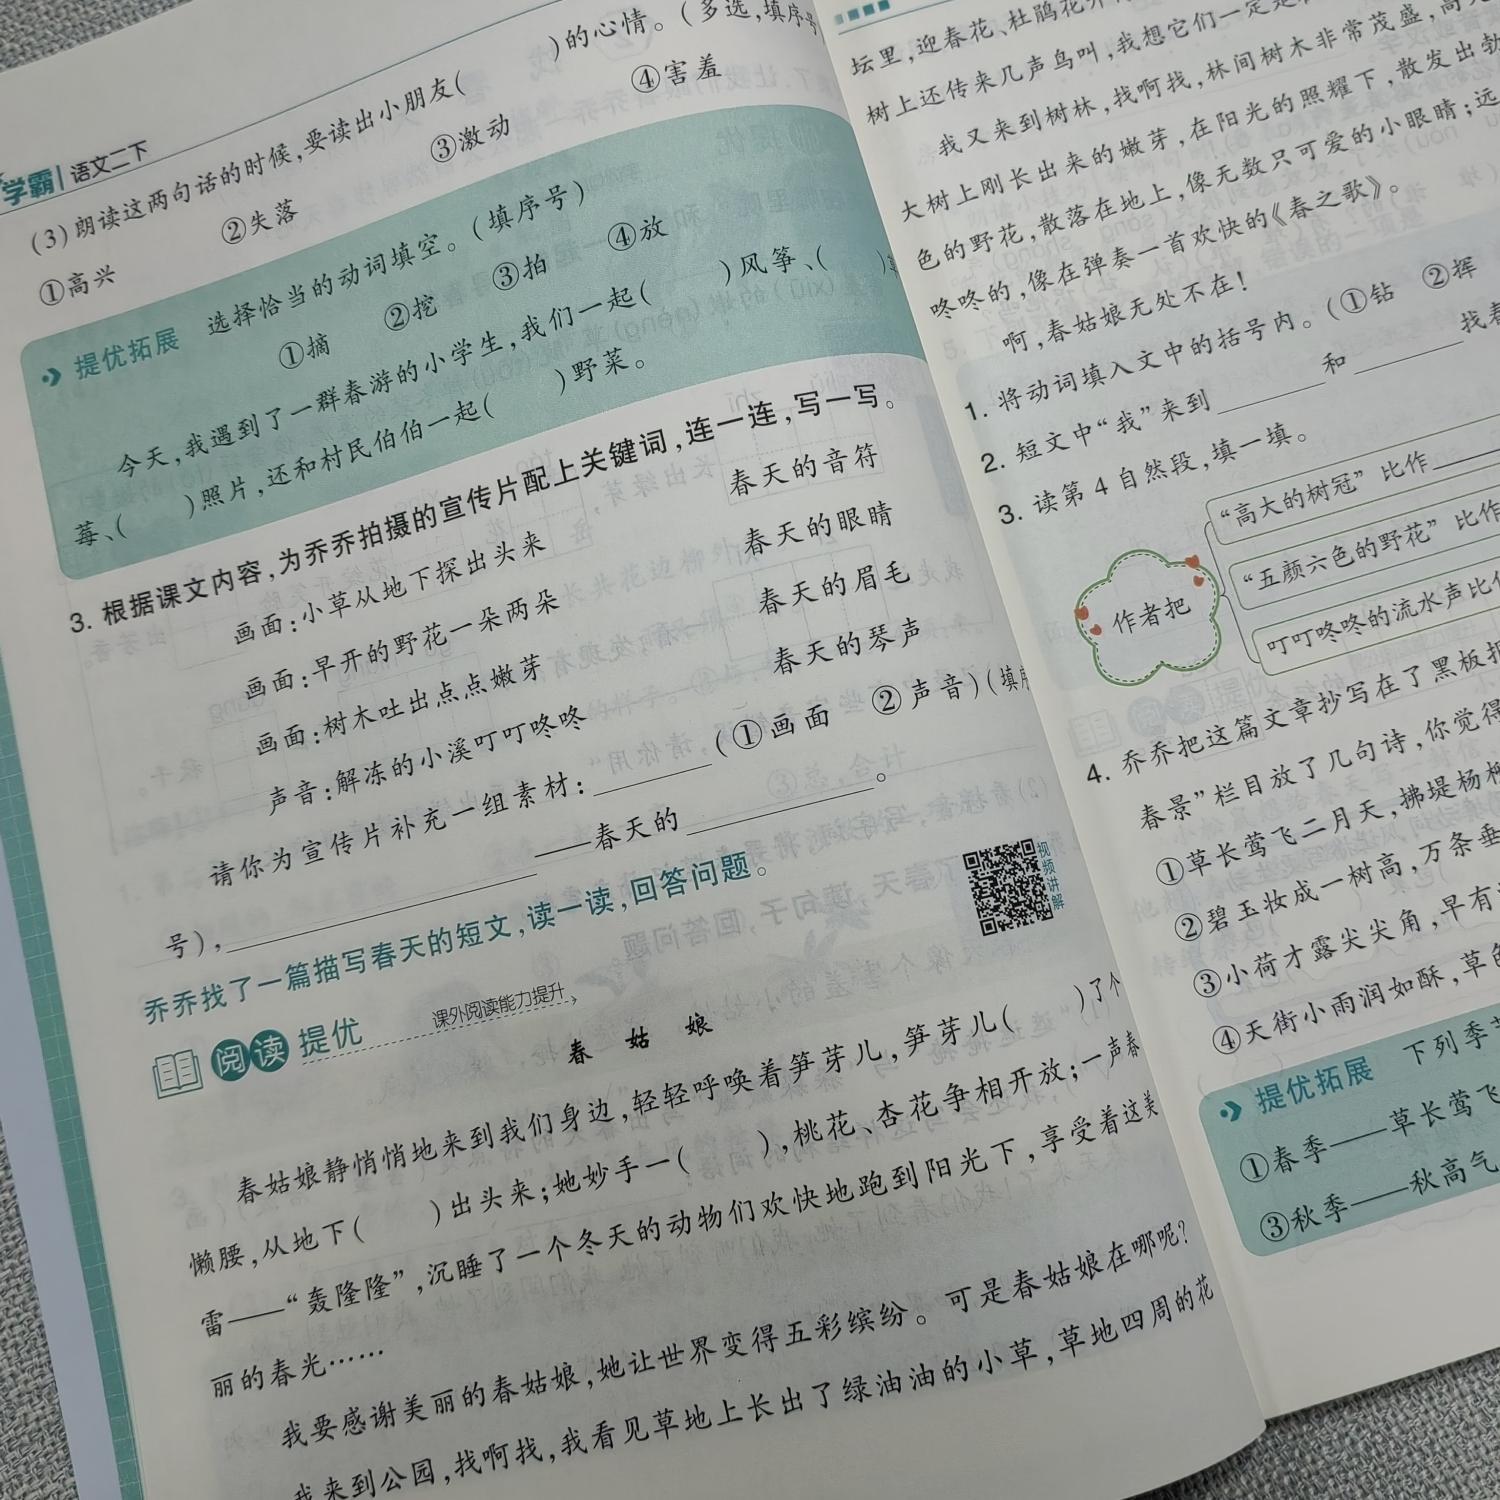 学霸 语文二下
(3)朗读这两句话的时候,要读出小朋友( )的心情。(多选,填序号
①高兴 ②失落 ③激动 ④害羞
提优拓展 选择恰当的动词填空。(填序号)
①摘 ②挖 ③拍 ④放
今天,我遇到了一群春游的小学生,我们一起( )风筝、( )
莓、( )照片,还和村民伯伯一起( )野菜。
3. 根据课文内容,为乔乔拍摄的宣传片配上关键词,连一连,写一写。
画面:小草从地下探出头来 春天的音符
画面:早开的野花一朵两朵 春天的眼睛
画面:树木吐出点点嫩芽 春天的眉毛
声音:解冻的小溪叮叮咚咚 春天的琴声
请你为宣传片补充一组素材:______(①画面 ②声音)(填序
号),______——春天的______。
乔乔找了一篇描写春天的短文,读一读,回答问题。
视频讲解
阅读 提优 课外阅读能力提升
春姑娘
春姑娘静悄悄地来到我们身边,轻轻呼唤着笋芽儿,笋芽儿( )了个
懒腰,从地下( )出头来;她妙手一( ),桃花、杏花争相开放;一声春
雷——“轰隆隆”,沉睡了一个冬天的动物们欢快地跑到阳光下,享受着这美
丽的春光……
我要感谢美丽的春姑娘,她让世界变得五彩缤纷。可是春姑娘在哪呢?
我来到公园,找啊找,我看见草地上长出了绿油油的小草,草地四周的花
坛里,迎春花、杜鹃花
树上还传来几声鸟叫,我想它们一定是
我又来到树林,找啊找,林间树木非常茂盛,高
大树上刚长出来的嫩芽,在阳光的照耀下,散发出勃
色的野花,散落在地上,像无数只可爱的小眼睛;远
咚咚的,像在弹奏一首欢快的《春之歌》。
啊,春姑娘无处不在!
1. 将动词填入文中的括号内。(①钻 ②挥
2. 短文中“我”来到______和______找春
3. 读第4自然段,填一填。
作者把
“高大的树冠”比作
“五颜六色的野花”比作
叮叮咚咚的流水声比作
4. 乔乔把这篇文章抄写在了黑板报
春景”栏目放了几句诗,你觉得
①草长莺飞二月天,拂堤杨柳
②碧玉妆成一树高,万条垂
③小荷才露尖尖角,早有
④天街小雨润如酥,草色
提优拓展 下列季节
①春季——草长莺飞
③秋季——秋高气